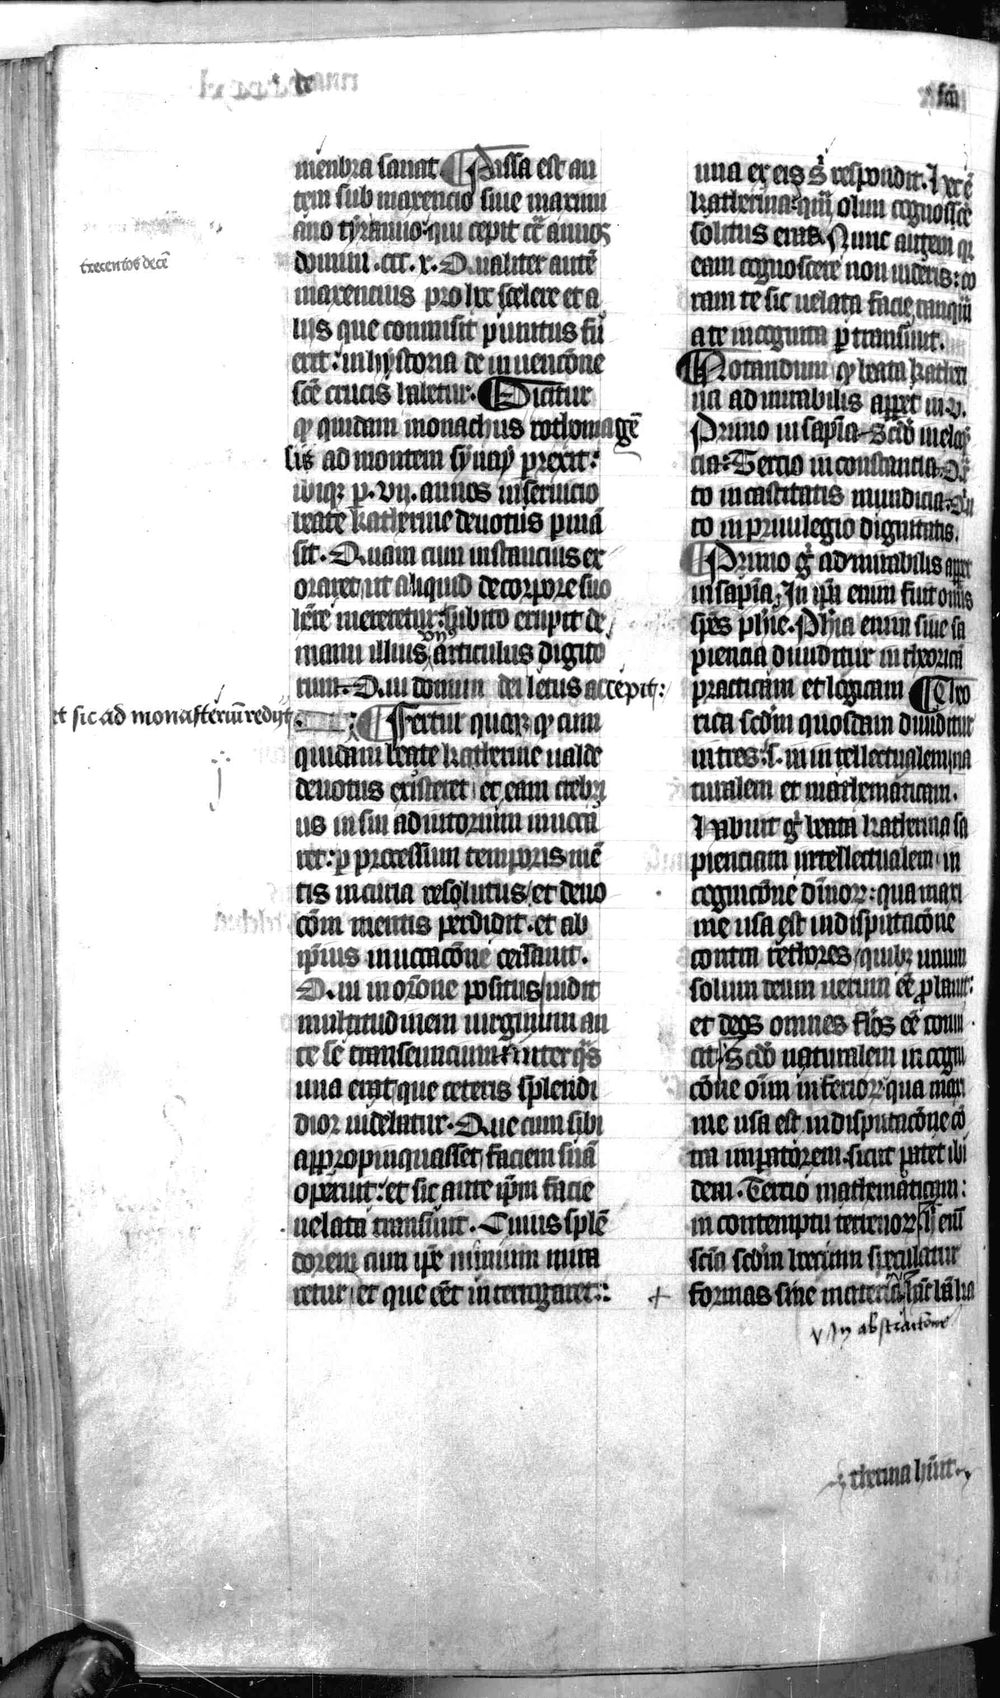 menbra sanat Passa est au
tem sub maxencio siue maximi
ano tyranno qui cepit c̄ annos
domini .ccc. x. Qualiter autē
trecentos decē
maxencius pro hoc scelere et a
liis que commisit punitus fu
erit : in hystoria de inuencōne
scē crucis habetur. Dicitur
quidam monachus rothomagē
sis ad montem synay prexit :
ibiqz p. vii. annos in seruicio
beate katherine deuotus pmā
sit. Quam cum instancius ex
oraret ut aliquid de corpore suo
hr̄e meretetur : subito erupit de
manu illius vn9 articulus digito
rum. Qui donum dei letus accepit :
et sic ad monasteriū redijt
Fertur quoqz cum
quidam beate katherine ualde
deuotus existeret et eam crebri
us in sui adiutorium inuoca
ret : p processum temporis mē
tis incuria resolutus / et deuo
cōm mentis perdidit . et ab
ip̄ius inuocacōne cessauit.
Qui in orōne positus uidit
multitudinem uirginum an
te se transeuncium inter qās
una erat que ceteris splendi
dior uidebatur. Que cum sibi
appropinquasset faciem suā
operuit : et sic ante ip̄m facie
uelata transiuit. Cuius splē
dorem cum ip̄e nimium mira
retur et que eēt interrogaret :
una ex eis s̄ respondit. Hec ē
katherina quā olim cognoscē
solitus eras. Nunc autem qz
eam cognoscere non uideris : co
ram te sic uelata facie tanquā
a te incognita ptransiuit.
Notandum beata katheri
na ad mirabilis apparet in .v.
Primo in sapīa Scd̄o in eloq
cia : Tercio in constancia Qr̄
to in castitatis mundicia Qn
to in priuilegio dignitatis.
Primo g̊ ad mirabilis appet
in sapīa . In ip̄a enim fuit omīs
spēs phīe. Phīa enim siue sa
piencia diuiditur in theoricā
practicam et logicam Theo
rica scd̄m quosdam diuiditur
in tres .s. in intellectualem na
turalem et mathematicam.
Habuit g̊ beata katherina sa
pienciam intellectualem in
cognicōne diuinorz : qua maxi
me usa est in disputacōne
contra rethores / quibz unum
solum deum uerum eē p̄bauit :
et deos omnes fl̄os eē conui
cit Scd̄o naturalem in cogni
cōne oīm inferiorz qua maxi
me usa est in disputacōne cō
tra imp̄atorem sicut patet ibi
dem. Tercio mathematicam :
in contemptu terrenorz eni
scīa scd̄m boecium speculatur
formas sine materia hāc bā ka
abstractōnē
therina hūit